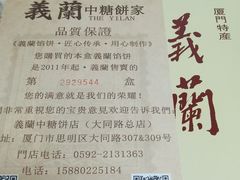 義蘭中糖餅家
THE YILAN
品質保證
《義蘭馅饼·匠心传承·用心制作》
您購買的本盒義蘭馅饼
是2011年起·義蘭售賣的
第 2929544 盒
您的满意就是我们的荣耀!
非常重视您的宝贵意见欢迎告诉我们
義蘭中糖饼店(大同路总店)
址:厦门市思明区大同路307&309号
門店电话:0592-2131363
电话:15880225184
厦門特産
義蘭